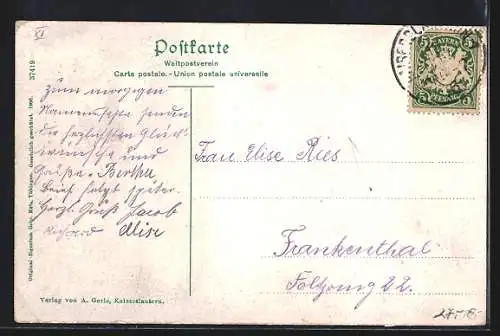 XI
Postkarte
Weltpostverein
Carte postale. - Union postale universelle
BAYERN
5 5
PFENNIG
37419
Original-Eigentum Gebr. Metz, Tübingen. Gesetzlich geschützt 1906.
Zum morgigen
Namensfeste senden
die herzlichsten Glück-
wünsche und
Grüße - Bertha
Brief folgt später.
Herzl. Gruß Jacob
Richard Elise
Frau Elise Ries
Frankenthal
22.
Verlag von A. Gerle, Kaiserslautern.